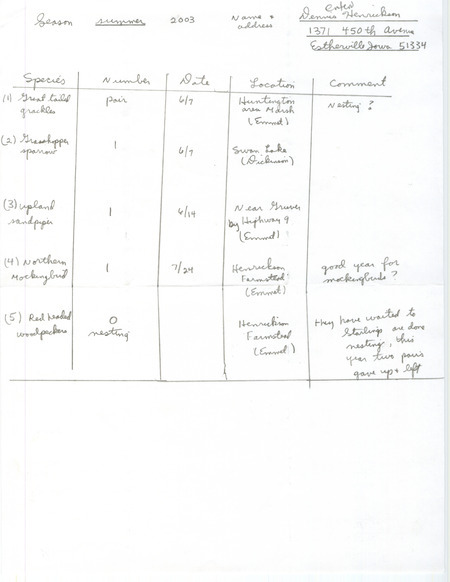 Season summer 2003 Name & address
enter
Dennis Henrickson
1371 450th Avenue
Estherville Iowa 51334
Species Number Date Location Comment
(1) Great tailed grackles pair 6/7 Huntington area Marsh (Emmet) Nesting?
(2) Grasshopper sparrow 1 6/7 Swan Lake (Dickinson)
(3) upland sandpiper 1 6/14 Near Gruver by Highway 9 (Emmet)
(4) Northern Mockingbird 1 7/24 Henrickson Farmstead (Emmet) good year for mockingbirds?
(5) Red headed woodpeckers 0 nesting Henrickson Farmstead (Emmet) they have waited to starlings are done nesting, this year two pairs gave up & left